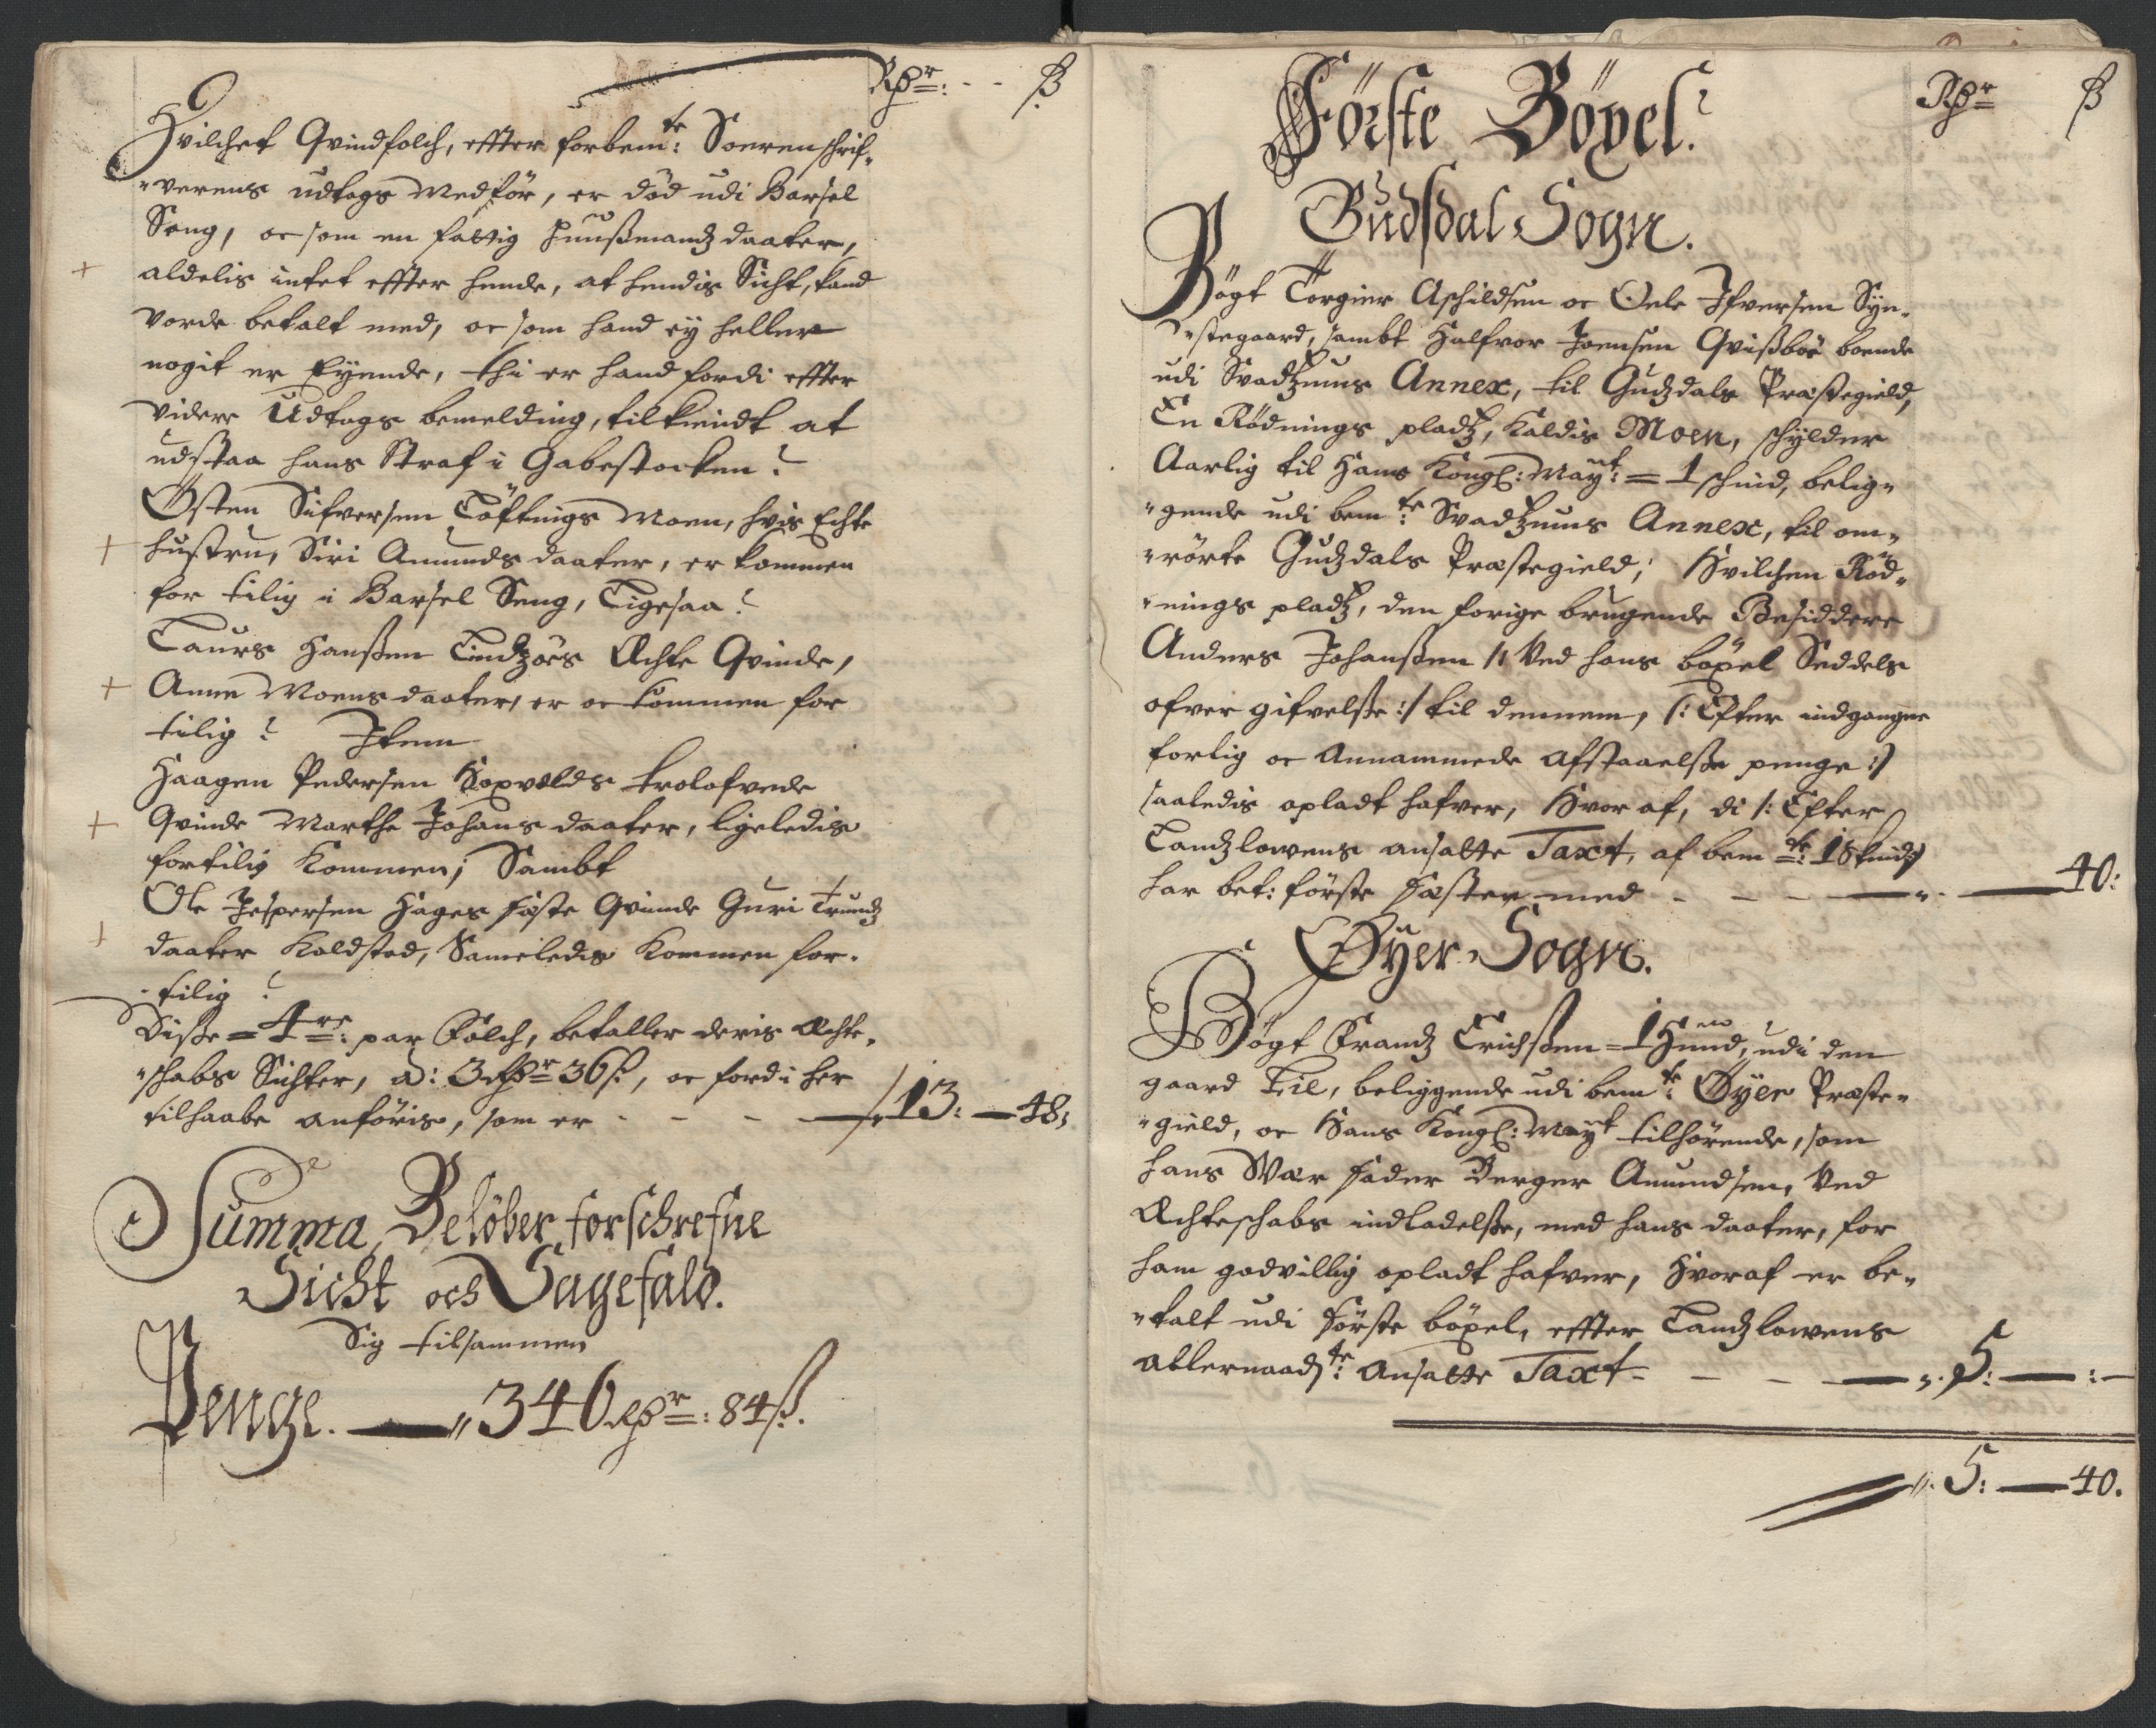 Rdr: - - ß
Hvilchet Qvindfolch, effter forbemte: Sorenschrif-
"verens udtogs Medför, er död udi Barsel
Seng, oc som en fattig Huußmandz daater,
aldelis intet effter hende, at hendis Sicht, kand
vorde betalt med, oc som hand ey heller
nogit er Eyende, thi er hand fordi effter
videre Udtogs bemelding, tilkiendt at
udstaa hans Straf i Gabestocken
Östen Sifversen Töftnigs Moen, hvis Echte
hustru, Siri Amunds daater, er kommen
for tilig i Barsel Seng, Ligesaa
Laurs Hanßen Lindzöes Ächte Qvinde,
Anne Moens daater, er oc kommen for
tilig Item
Haagen Pedersen Hoxvolds trolofvede
Qvinde Marthe Johans daater, ligeledis
fortilig Kommen; Sambt
Ole Jespersen Hages fäste Qvinde Guri Trundz
daater Koldstad, Sameledis Kommen for-
-tilig
Diße = 4re: par Folch, betaller deris Ächte-
"schabs Sichter, a: 3 Rdr 36 ß, oc fordi her
tilhaabe anföris, som er - - - 13: 48:
Summa, Belöber forschrefne
Sicht och Sagefald.
Sig tilsammen
Penge. 346 Rdr: 84 ß.
Rdr ß
Förste Böxel.
Gudsdal Sogn.
Bögt Torgier Aschildsen oc Oele Ifversen Syn-
"stegaard, sambt Halfvor Joensen Qvißböe boende
udi Svadzums Annex, til Gudzdals Præstegield,
En Rödnings pladtz, Kaldis Moen, schylder
Aarlig til Hans Kongl: Mayt: = 1 schind, belig-
"gende udi bemte: Svadzums Annex, til om-
"rörte Gudzdals Præstegield; Hvilchen Röd-
"nings pladtz, den forige brugende Besiddere
Anders Johanßen /: Ved hans böxel Seddels
ofver gifvelße :/ til dennem, /: Efter indgangne
forlig oc Annammede Afstaaelße penge :/
saaledis opladt hafver, Hvor af, di /: Efter
Landzlowens ansatte Taxt, af bemte: 1 Skind :/
har bet: förste fæsten med - - - 40:
Øyer Sogn.
Bögt Frandz Erichßen = 1 Hund, udi den
gaard Lie, beliggende udi bemte: Øyer Præste-
"gield, oc Hans Kongl: Mayt tilhörende, som
hans Wær fader Berger Amundsen, Ved
Ächteschabs indladelße, med hans daater, for
ham godvillig opladt hafver, Hvoraf er be-
"talt udi förste böxel, effter Landzlowens
allernaadste: Ansatte Taxt - - - 5: :
5: 40.